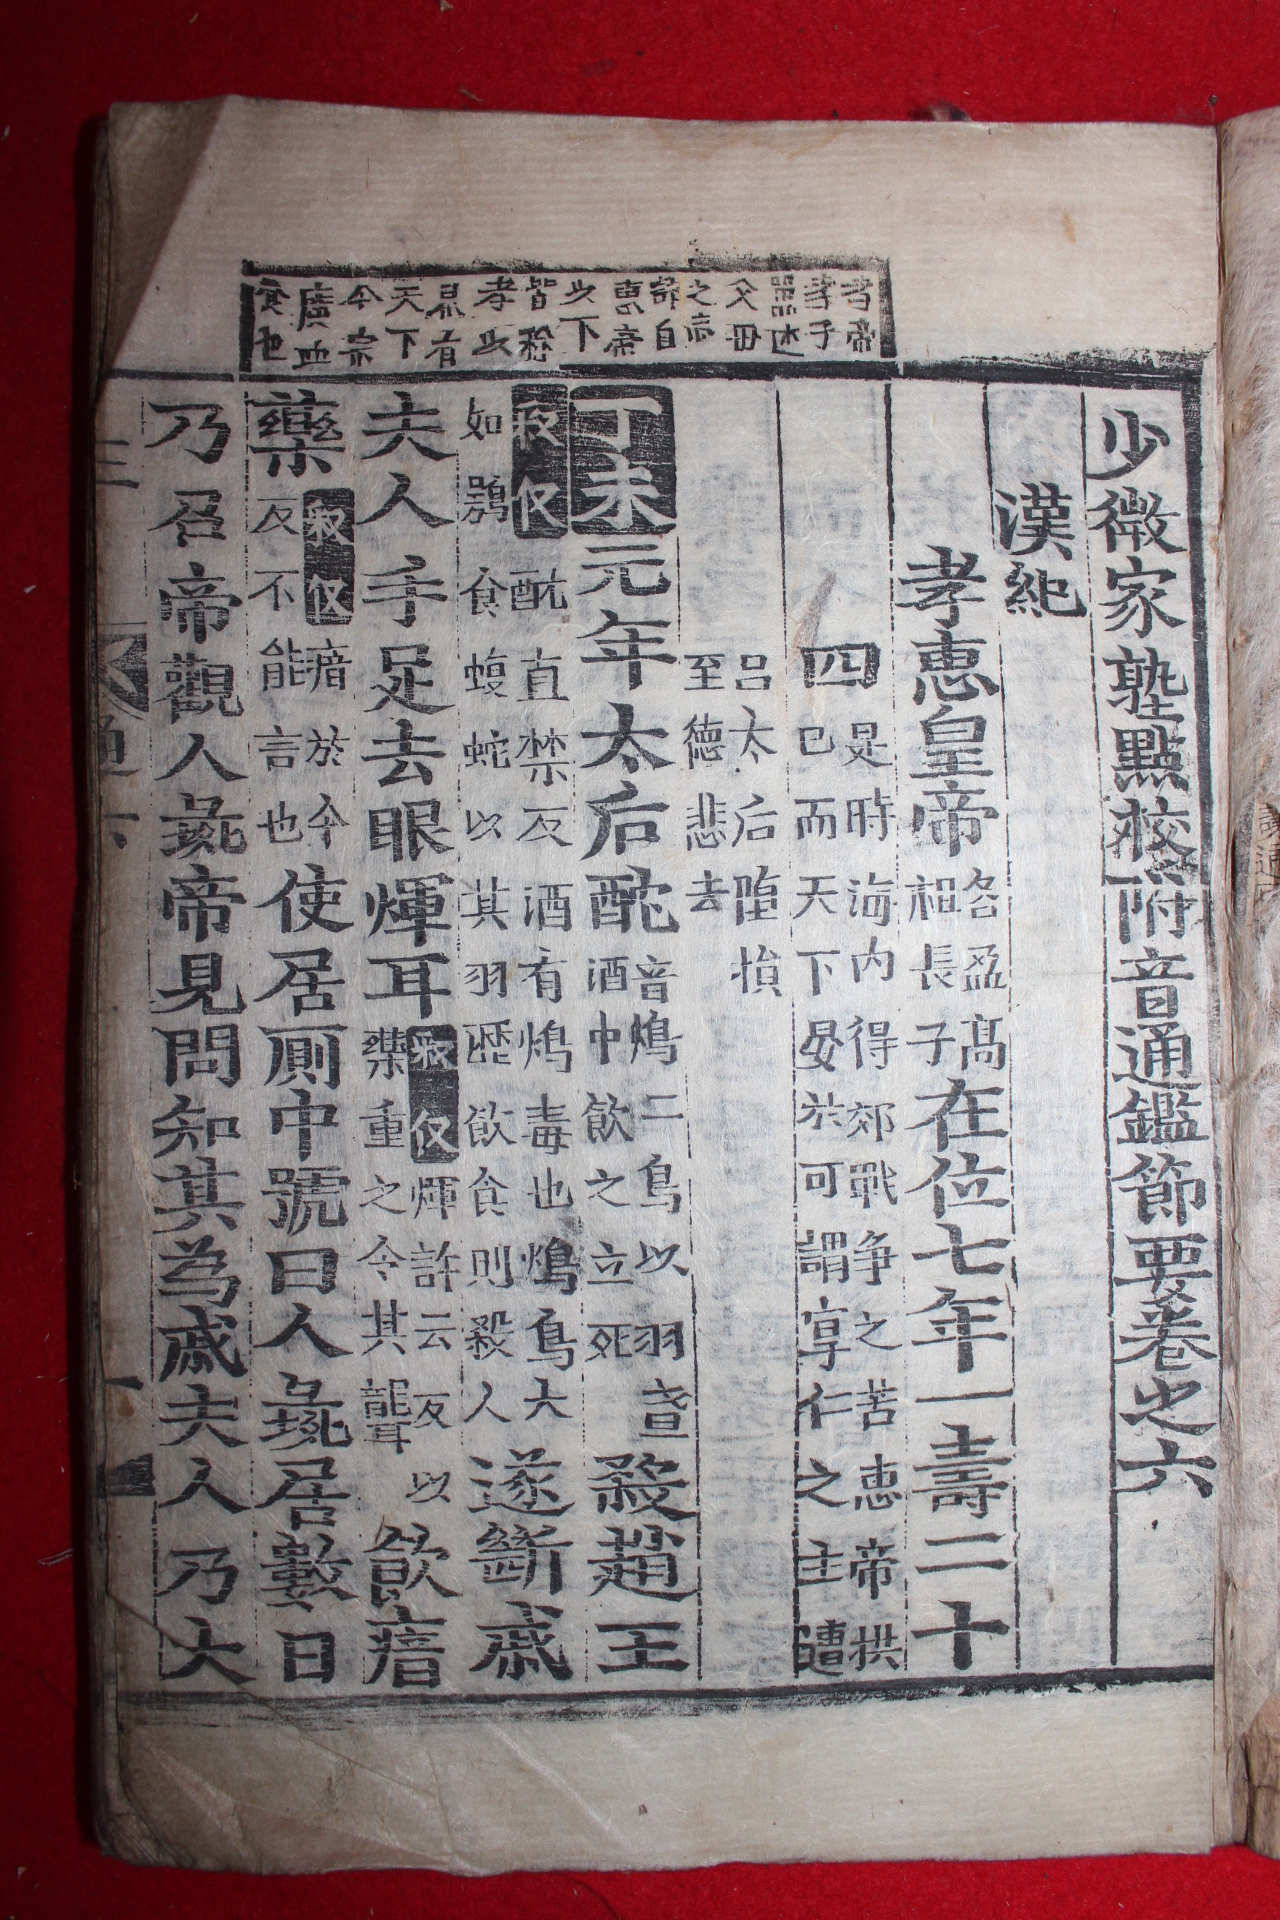 孝子
述
父毋
之
自
惠帝
以下
皆称
孝以
有
天下
今宗
血
食也
少微家塾點校附音通鑑節要卷之六
漢紀
孝惠皇帝名盈高祖長子在位七年壽二十
四是時海内得郊戰争之苦惠帝拱
巳而天下晏於可謂仁之主遭
呂太后
至德悲去
丁未元年太后酖音鴆二鳥以羽
酒中飲之立死殺趙王
釈仅酖直禁反酒有鴆毒也鴆鳥大
如鶚食蝮蛇以其羽歷飲食則殺人遂斷戚
夫人手足去眼煇耳釈仅煇許云反以
藥重之令其聾飲瘖
藥釈仅瘖於今
反不能言也使居厠中號曰人彘居數日
乃召帝觀人彘帝見問知其為戚夫人乃大
通六
一